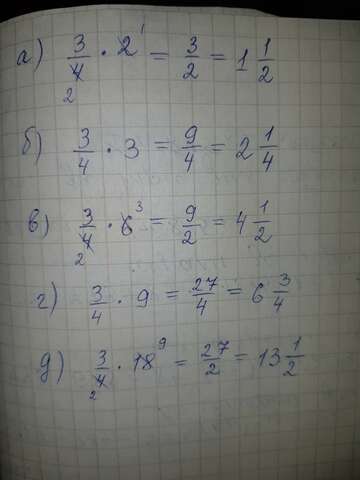 а) 3/4 2 · 2 1 = 3/2 = 1 1/2
б) 3/4 · 3 = 9/4 = 2 1/4
в) 3/4 2 · 6 3 = 9/2 = 4 1/2
г) 3/4 · 9 = 27/4 = 6 3/4
д) 3/4 2 · 18 9 = 27/2 = 13 1/2